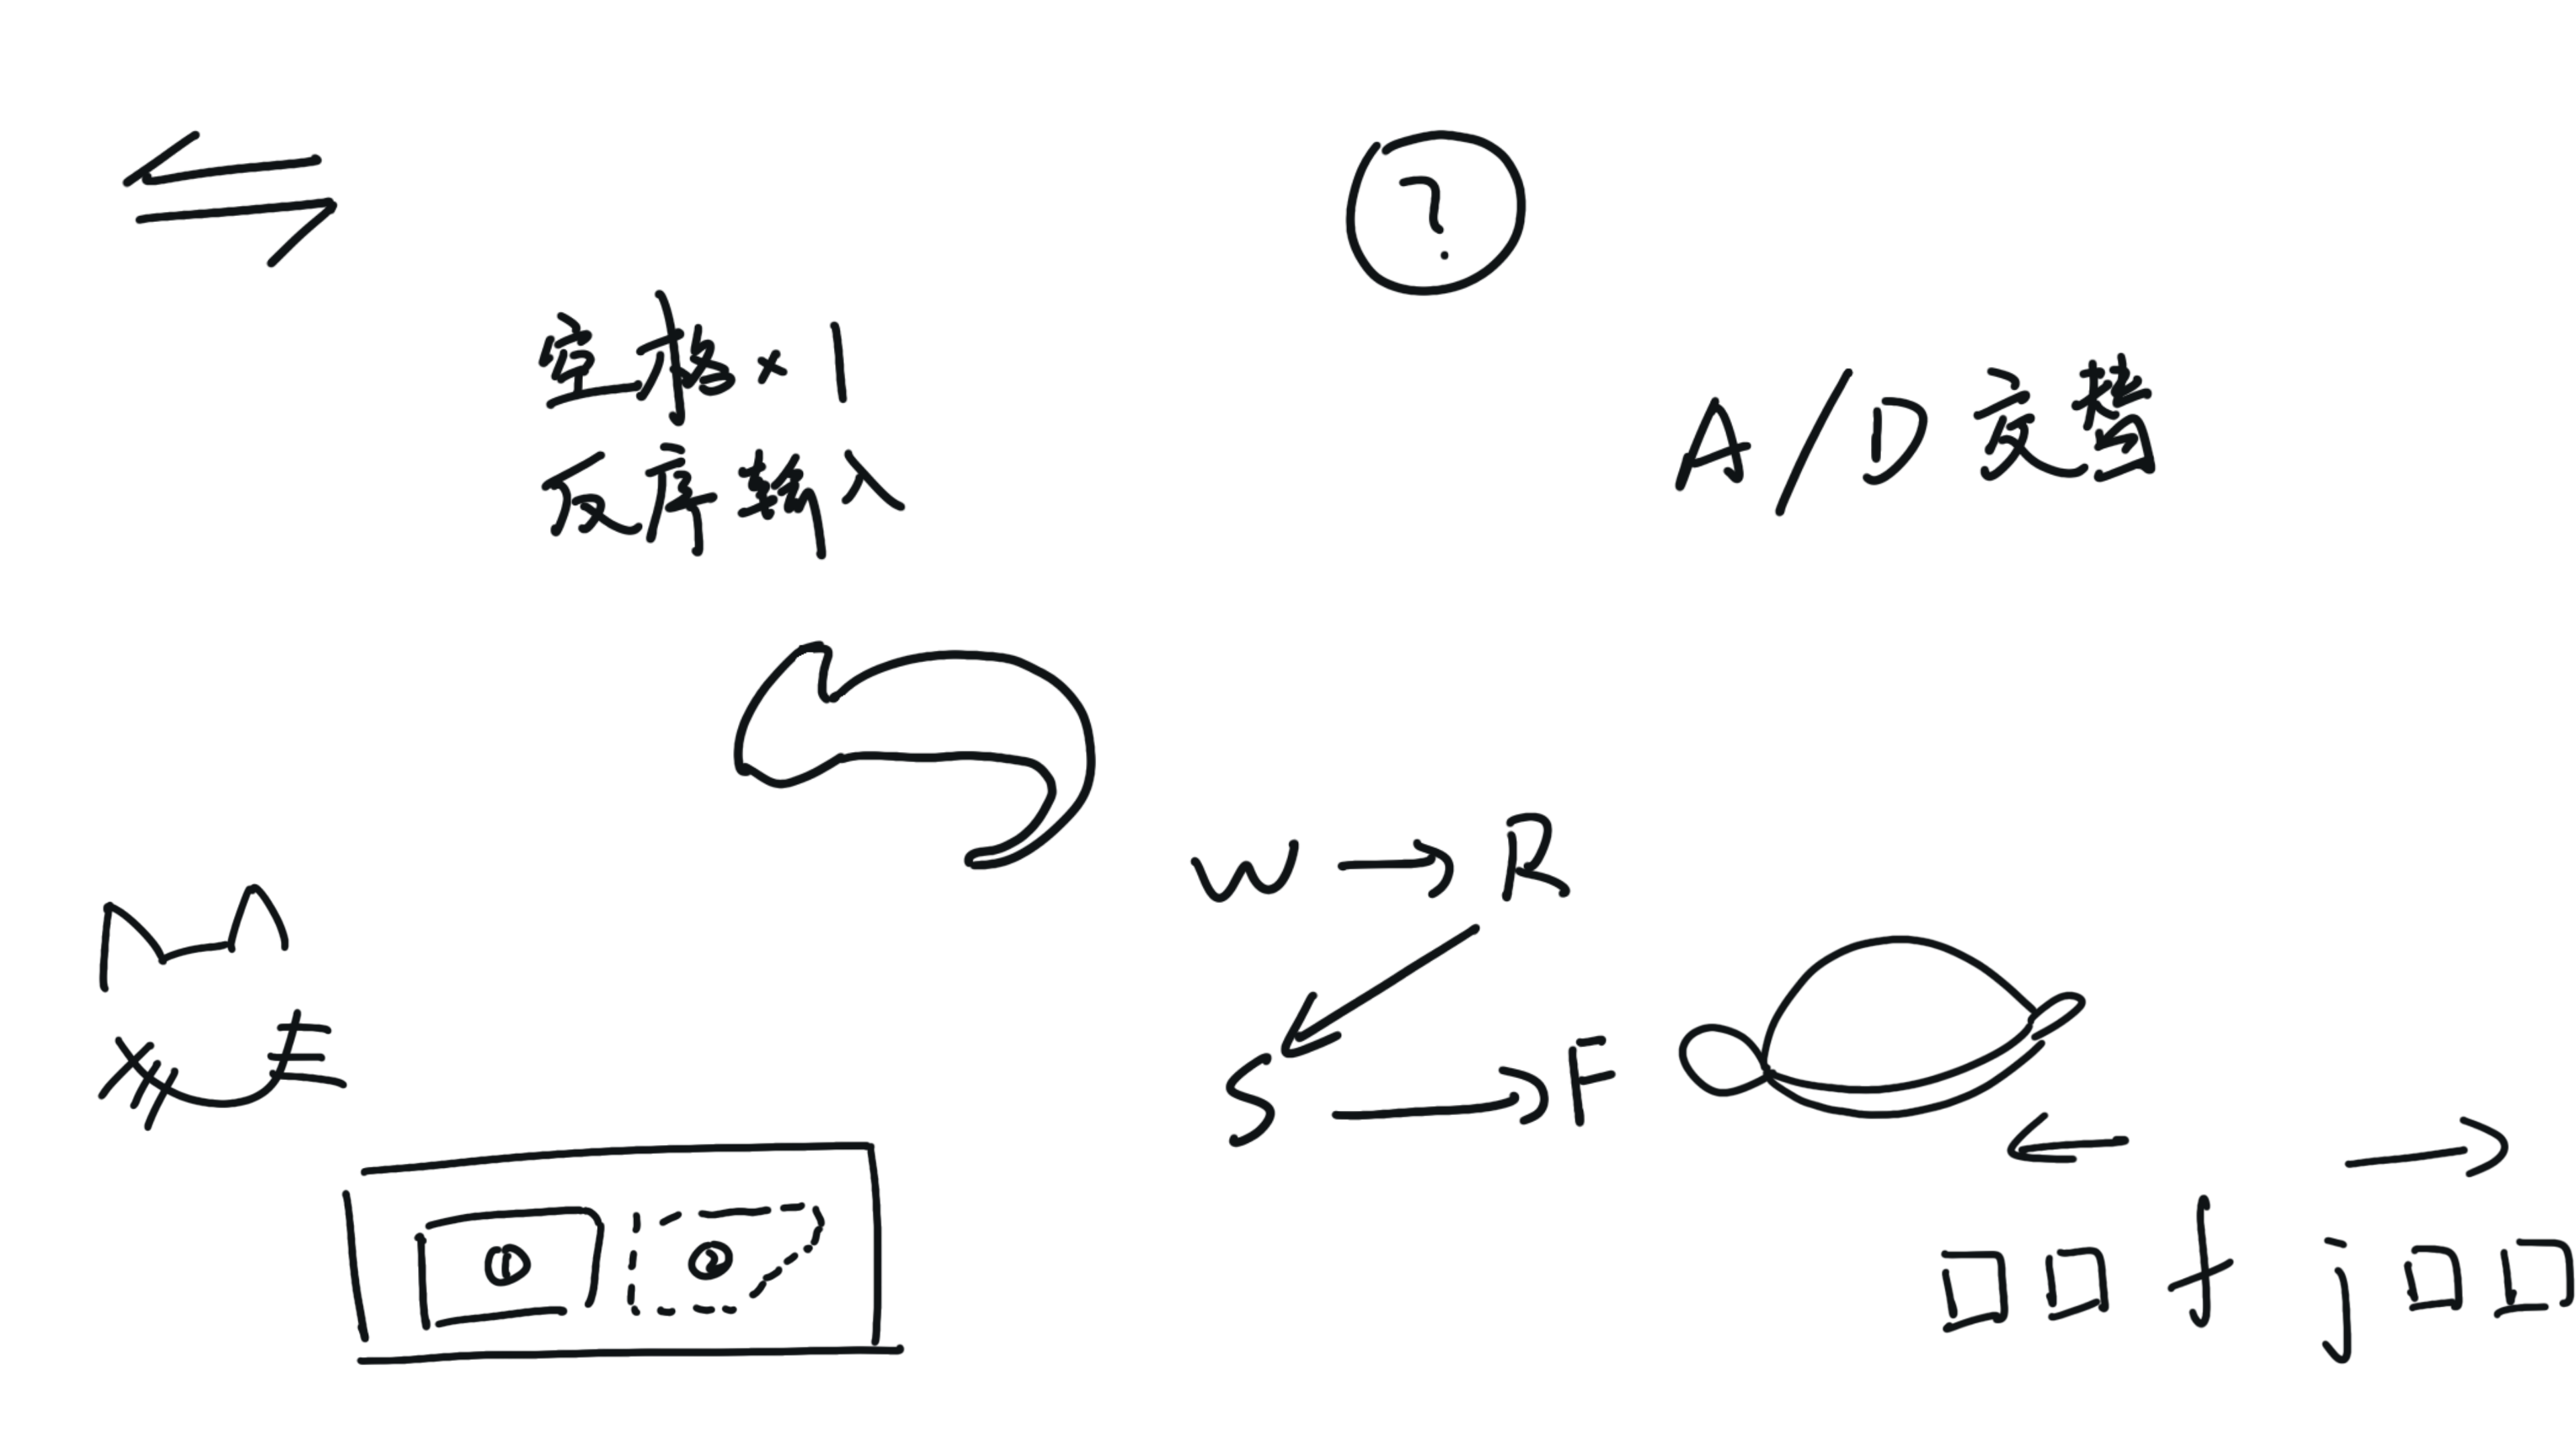 ?
空格×1
反序输入
A/D交替
W→R
S→F
①
②
←
→
口口f j口口